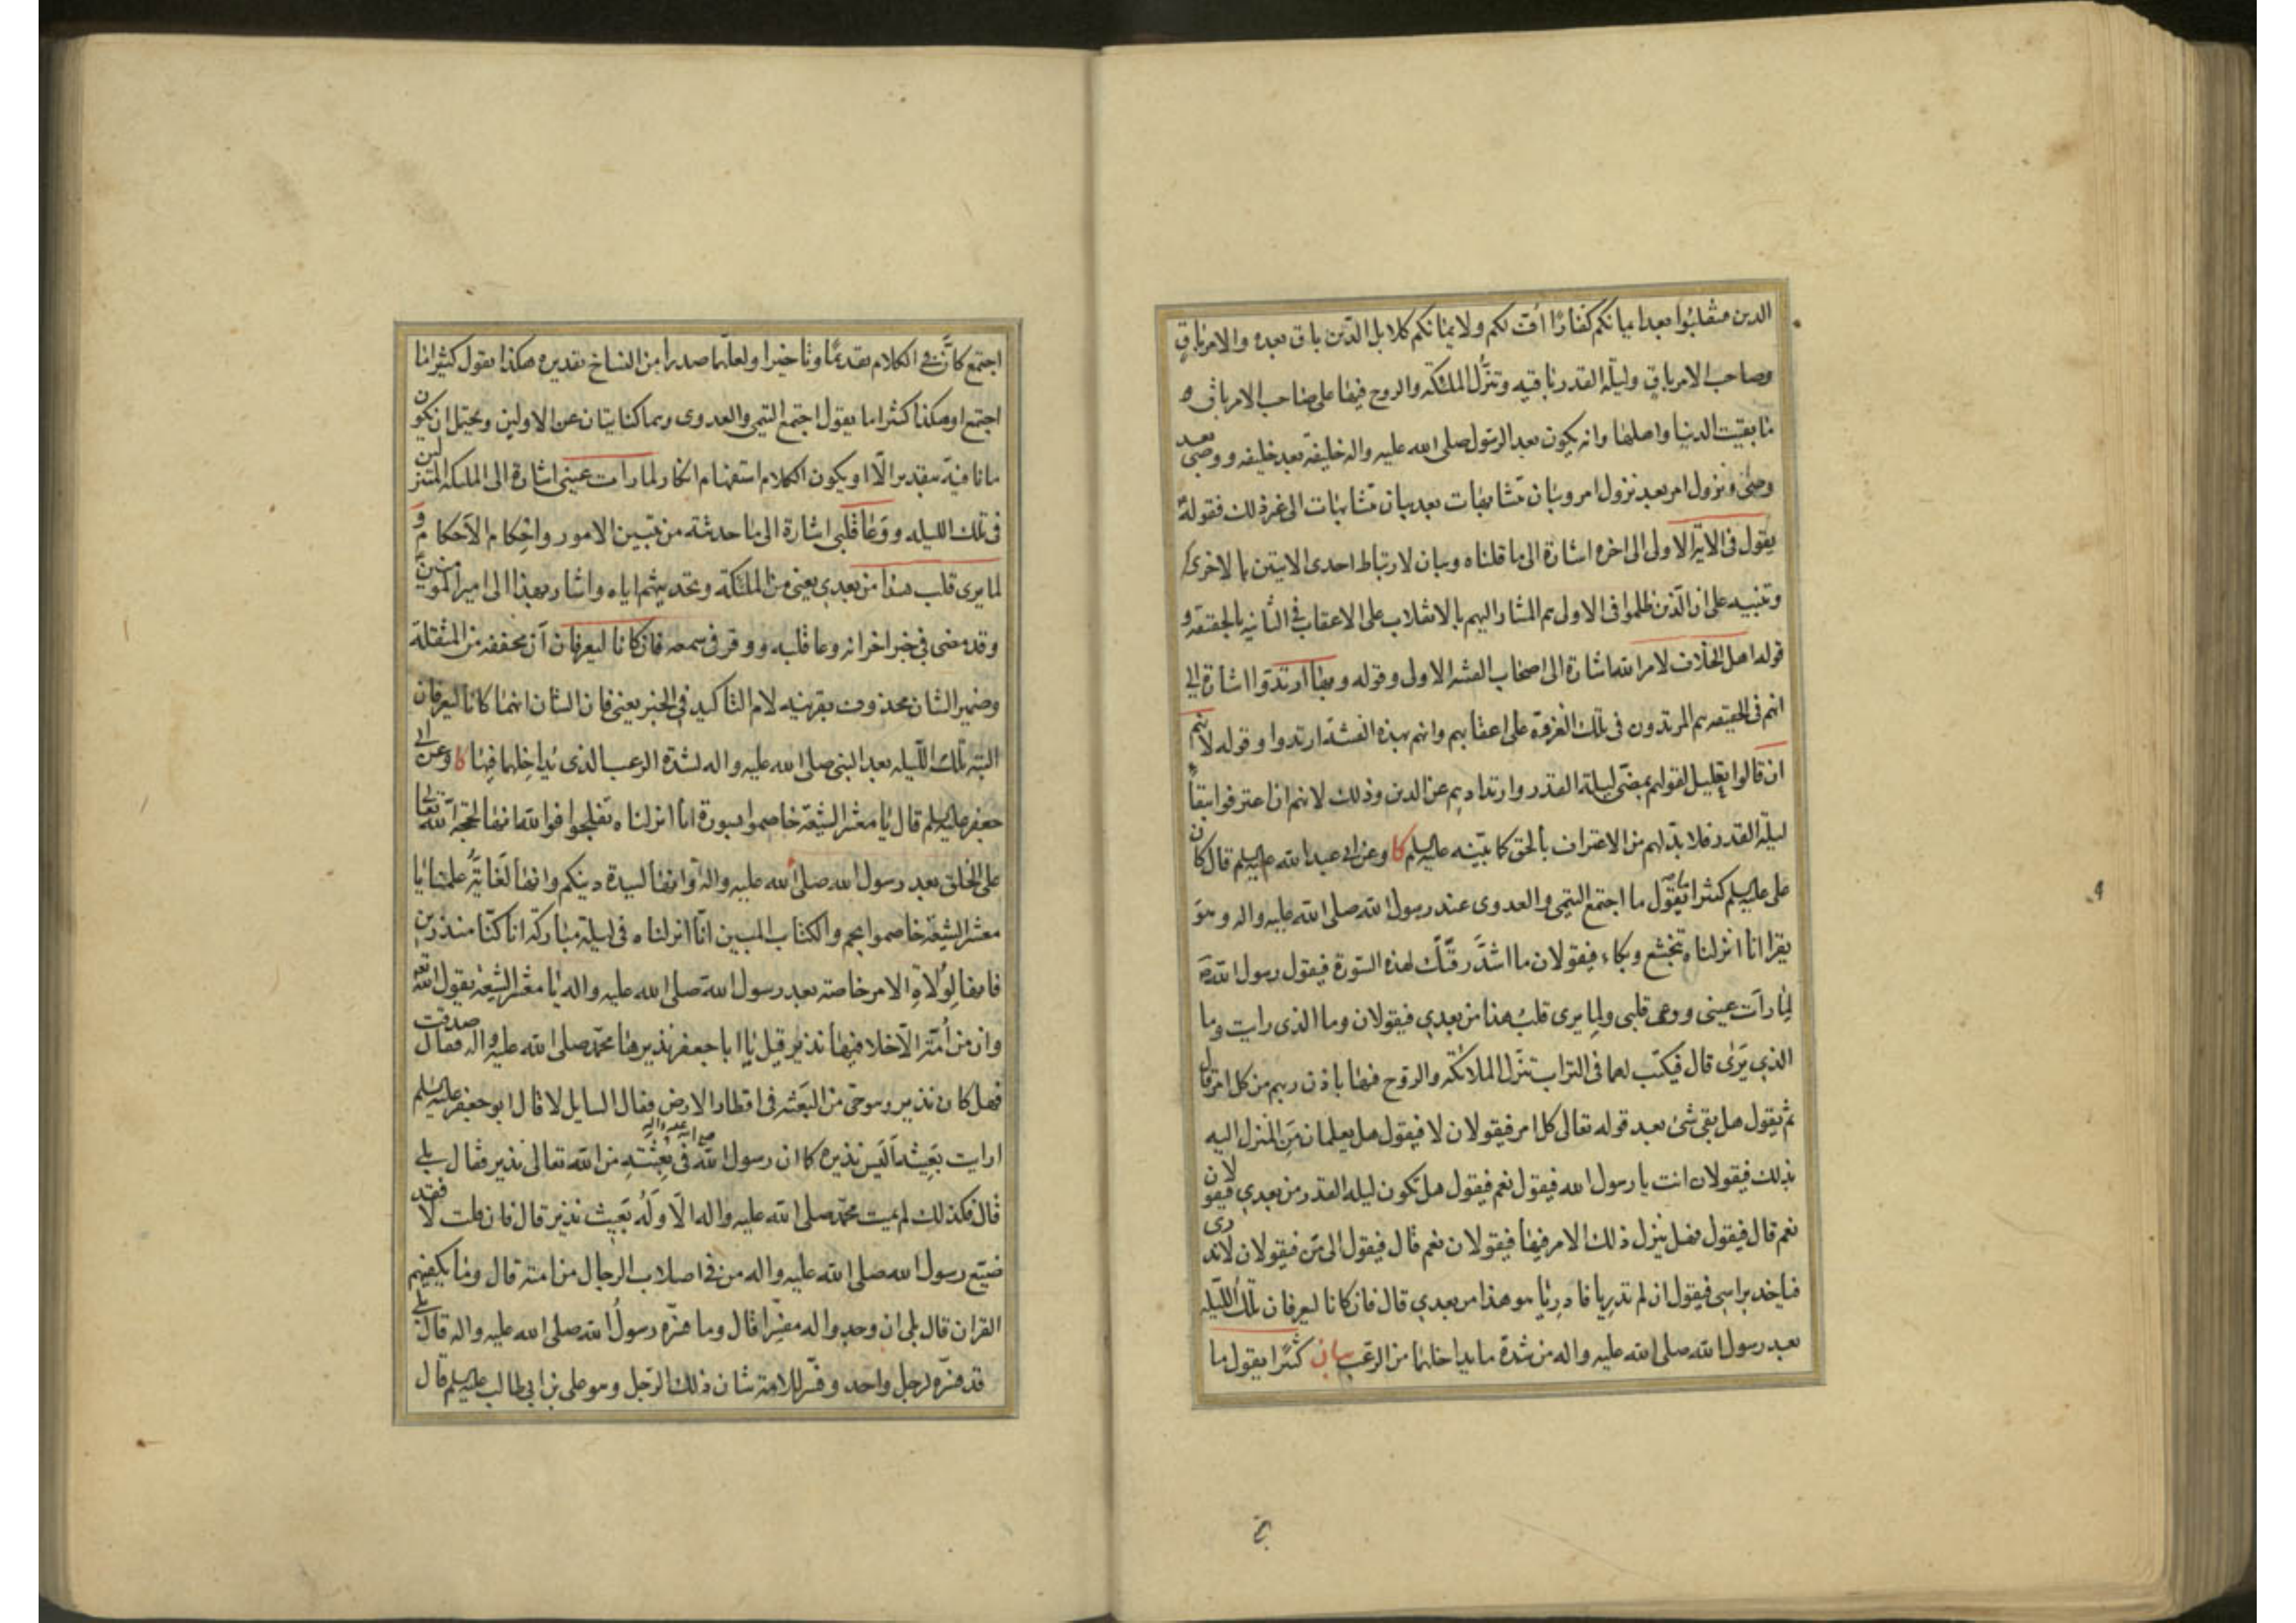 الدين متقلبوا بعد ايمانكم كفارا اقت لكم ولايمانكم كلا بل الدين باق بعده والامر باق
وصاحب الامر باق وليلة القدر باقيه وتنزل الملئكة والروح فيها على صاحب الامر باق
ما بقيت الدنيا واهلها وانه يكون بعد الرسول صلى الله عليه واله خليفة بعد خليفه ووصى بعد
وصى ونزول امر بعد نزول امر وبيان متشابهات بعد بيان متشابهات الى غير ذلك فقوله
يقول فى الاية الاولى الى اخره اشارة الى ما قلناه وبيان لارتباط احدى الايتين بالاخرى
وتنبيه على ان الذين ظلموا فى الاول هم المشار اليهم بالانقلاب على الاعقاب فى الثانيه بالحقيقه و
قوله اهل الخلاف لامر الله اشارة الى اصحاب الفتنة الاولى وقوله وبها ارتدوا اشارة الى
انهم فى الحقيقه هم المرتدون فى تلك الغزوة على اعقابهم وانهم بهذه الفتنة ارتدوا وقوله لانهم
ان قالوا تعليل لقولهم بمضى ليلة القدر وارتدادهم عن الدين وذلك لانهم ان اعترفوا ببقاء
ليلة القدر فلا بد لهم من الاعتراف بالحق كما بينه عليه السلم كا وعن ابى عبد الله عليه السلم قال كان
على عليه السلم كثيرا ما يقول ما اجتمع التيمى والعدوى عند رسول الله صلى الله عليه واله وهو
يقرا انا انزلناه بتخشع وبكاء فيقولان ما اشد رقتك لهذه السورة فيقول رسول الله ص
لما رات عينى ووعى قلبى ولما يرى قلب هذا من بعدى فيقولان وما الذى رايت وما
الذى يرى قال فيكتب لهما فى التراب تنزل الملائكة والروح فيها باذن ربهم من كل امر قال
ثم يقول هل بقى شئ بعد قوله تعالى كل امر فيقولان لا فيقول هل يعلمان من المنزل اليه
بذلك فيقولان انت يا رسول الله فيقول نعم فيقول هل تكون ليلة القدر من بعدى فيقولان
نعم قال فيقول فهل ينزل ذلك الامر فيها فيقولان نعم قال فيقول الى من فيقولان لا ندرى
فياخذ براسى فيقول ان لم تدريا فادريا هو هذا من بعدى قال فان كانا ليعرفان تلك الليلة
بعد رسول الله صلى الله عليه واله من شدة ما يداخلهما من الرعب بيان كثيرا يقول ما
اجتمع كان فى الكلام تقديما وتاخيرا ولعلهما صدرا من النساخ تقديره هكذا يقول كثيرا ما
اجتمع او هكذا كثيرا ما يقول اجتمع التيمى والعدوى وهما كنايتان عن الاولين ويحتمل ان يكون
ما نافية بتقدير الا او يكون الكلام استفهام انكار لما رات عينى اشارة الى الملئكة المتنزلين
فى تلك الليله ووعا قلبى اشارة الى ما حدثته من تبيين الامور واحكام الاحكام و
لما يرى قلب هذا من بعدى يعنى من الملئكة وتحديثهم اياه واشار بهذا الى امير المومنين
وقد مضى فى خبر اخر انه وعا قلبه ووقر فى سمعه فان كانا ليعرفان ان مخففه من المثقلة
وضمير الشان محذوف بقرينه لام التاكيد فى الخبر يعنى فان الشان انهما كانا ليعرفان
البته تلك الليله بعد النبى صلى الله عليه واله لشدة الرعب الذى تداخلهما فيها كا وعن ابى
جعفر عليه السلم قال يا معشر الشيعة خاصموا بسورة انا انزلناه تفلجوا فوالله انها لحجة الله تعالى
على الخلق بعد رسول الله صلى الله عليه واله وانها لسيدة دينكم وانها لغاية علمنا يا
معشر الشيعة خاصموا بحم والكتاب المبين انا انزلناه فى ليلة مباركة انا كنا منذرين
فانها لولاة الامر خاصة بعد رسول الله صلى الله عليه واله يا معشر الشيعة يقول الله تعه
وان من امة الا خلا فيها نذير قيل يا ابا جعفر نذيرها محمد صلى الله عليه واله فقال صدقت
فهل كان نذير وهو حى من البعثه فى اقطار الارض فقال السايل لا قال ابو جعفر عليه السلم
ارايت بعيثه اليس نذيره كما ان رسول الله صلى الله عليه واله فى بعثته من الله تعالى نذير فقال بلى
قال فكذلك لم يمت محمد صلى الله عليه واله الا وله بعيث نذير قال فان قلت لا فقد
ضيع رسول الله صلى الله عليه واله من فى اصلاب الرجال من امته قال وما يكفيهم
القران قال بلى ان وجدوا له مفسرا قال وما فسره رسول الله صلى الله عليه واله قال بلى
قد فسره لرجل واحد وفسر للامة شان ذلك الرجل وهو على بن ابى طالب عليه السلم قال